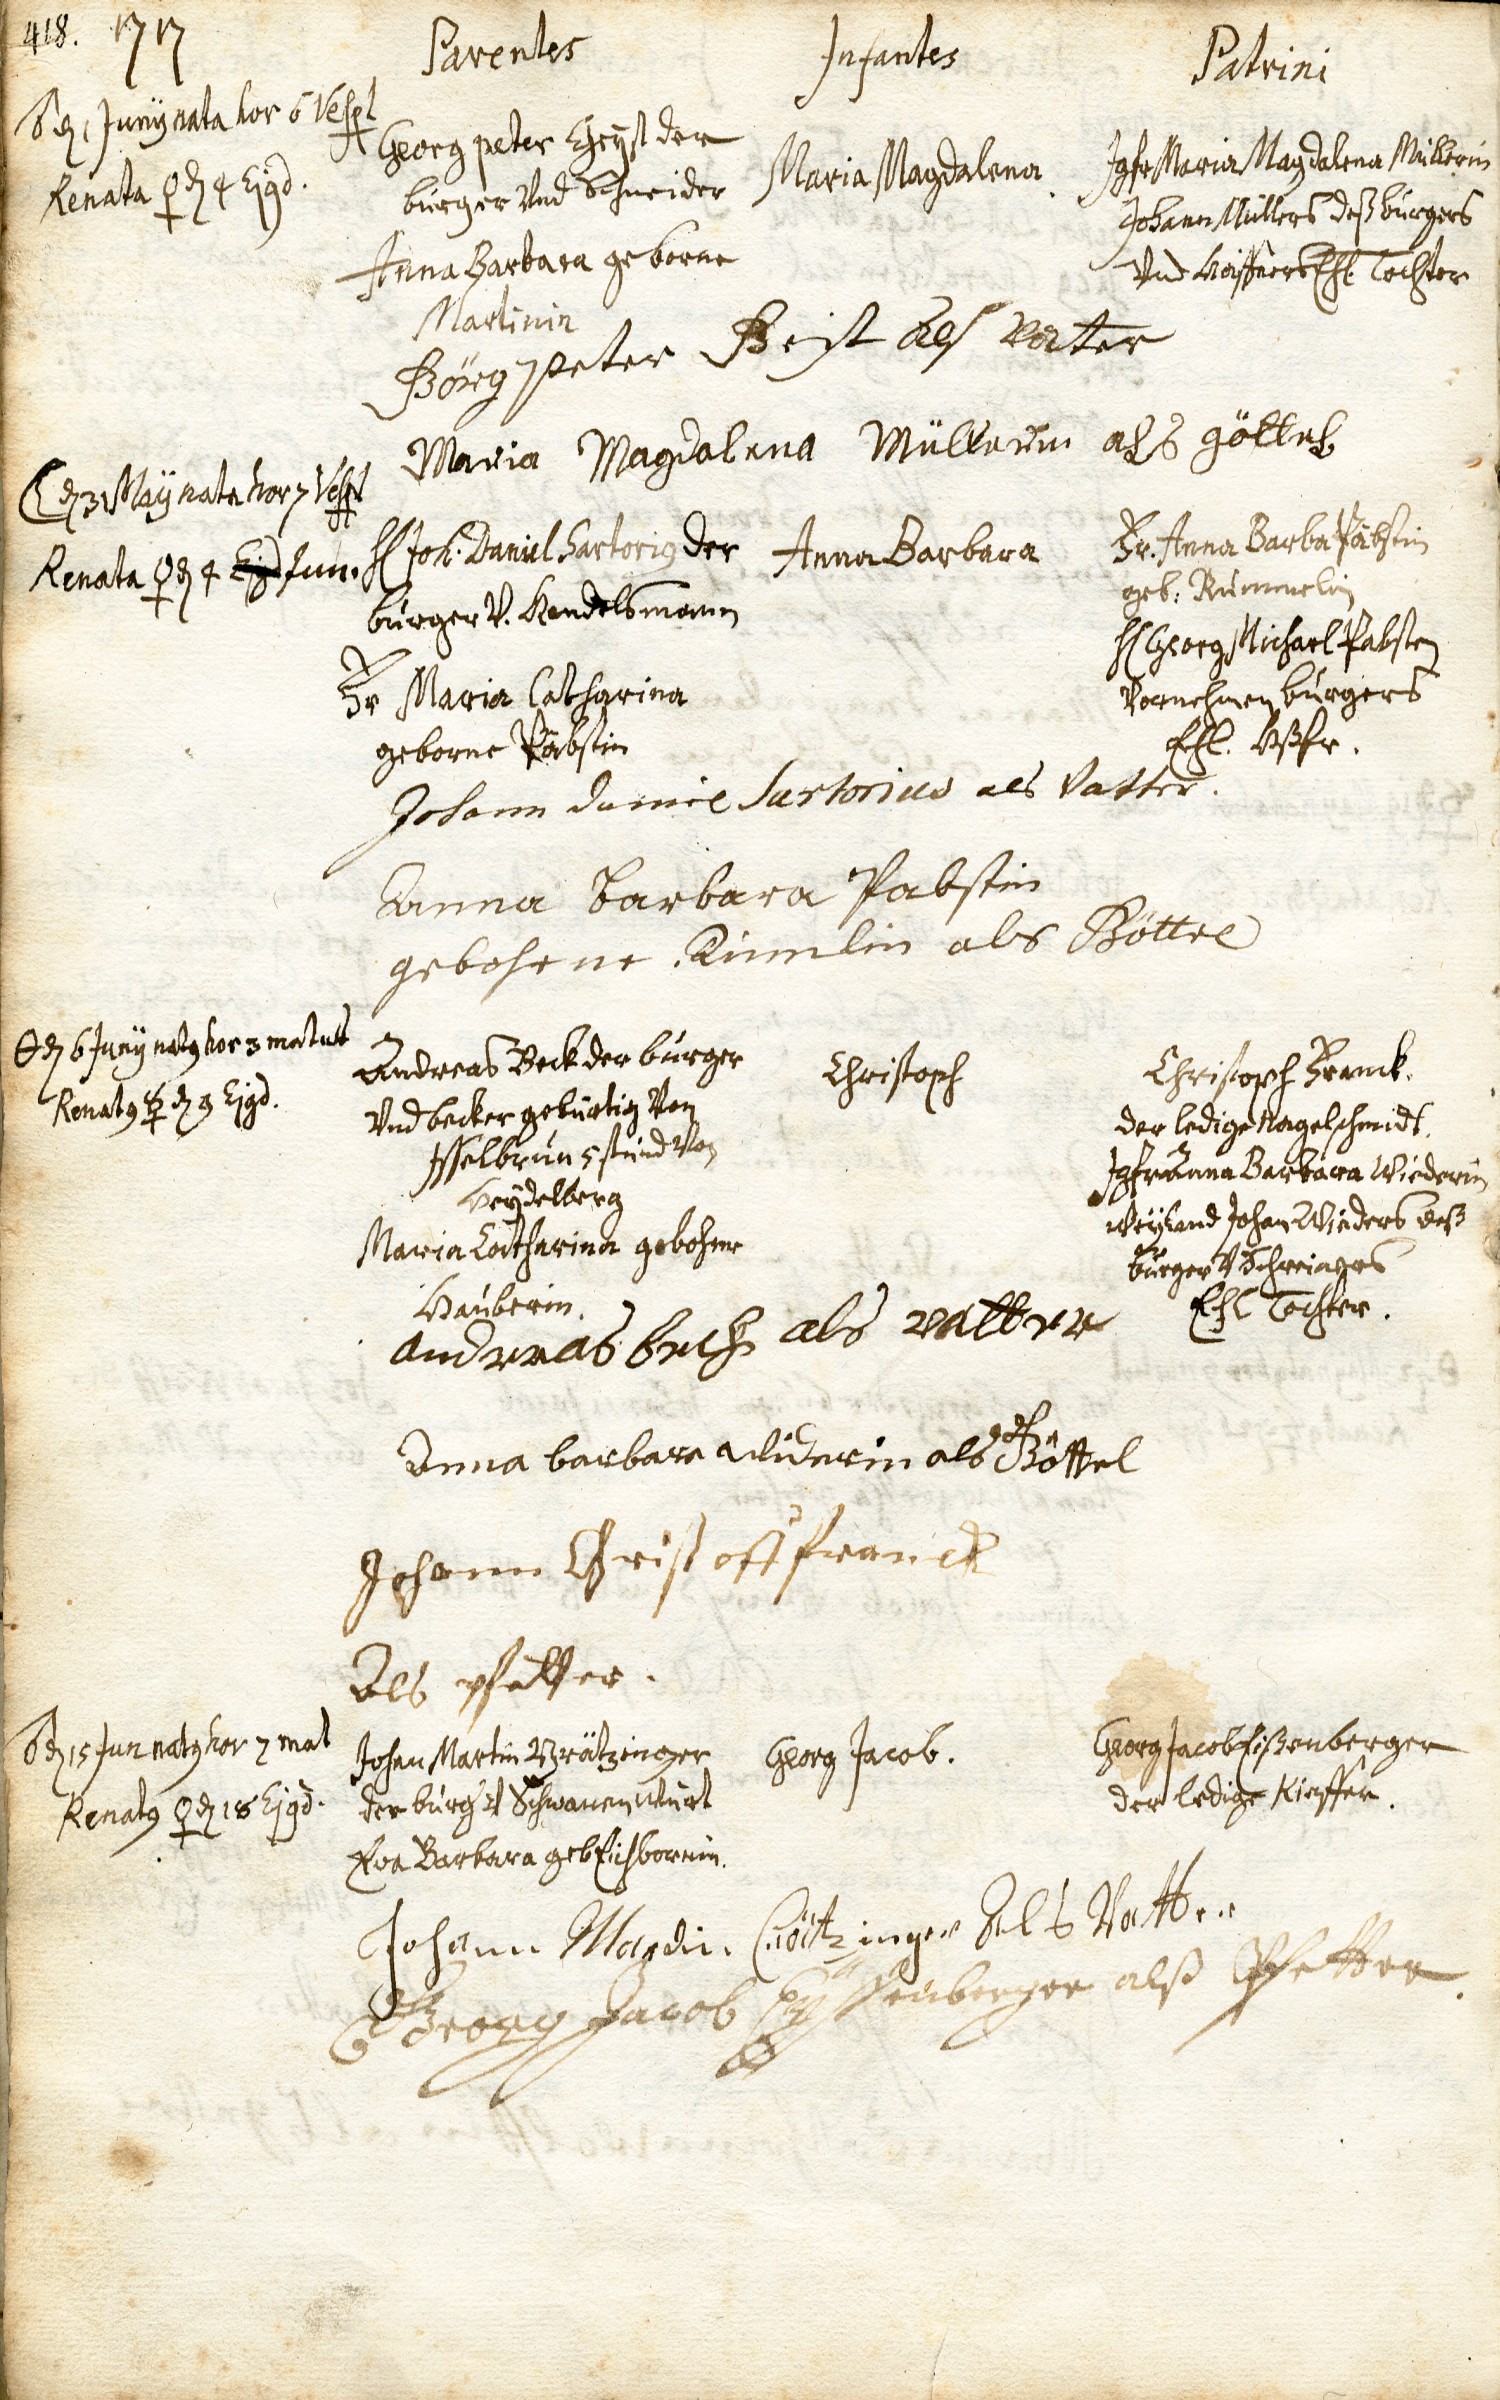 418. 1717
Parentes Infantes Patrini
♂ d. 1 Junij nata hor 6 Vesp
Renata ♀ d. 4 Ejusd.
Georg peter Geyst der
burger Vnd Schneider
Anna Barbara geborne
Martinin
Maria Magdalena
Jgfr Maria Magdalena Müllerin
Johann Müllers deß burgers
Vnd Ehl. Tochter
Görg Peter Geist als vatter
Maria Magdalena Müllerin als göttel
☾ d. 31 Maij nata hor 7 Vesp
Renata ♀ d. 4 Jun.
H Joh. Daniel Sartorig der
burger V. Handelsmann
Fr Maria Catharina
geborne Päbstin
Anna Barbara
Fr. Anna Barba Päbstin
geb: Rummelin
H Georg Michael Pabsten
Vornehmen burgers
Ehl. Hßfr.
Johann daniel Sartorius als Vatter.
Anna Barbara Pabstin
gebohrne Rimmlin als Göttel
d. 6 Junij natg hor 3 matut
Renatg ☿ d. 9 Ejgd.
Andreas Beck der burger
Vnd becker gebürtig Von
Isselbrun 5 stund Von
Heydelberg
Maria Catharina gebohrne
Hauberin.
Christoph
Christoph Franck.
der ledige Nagelschmidt.
Jgfr Anna Barbara Wiederin
Weyland Johan Wieders deß
burger V Schreiners
Ehl Tochter.
andreas beck als vatter
Anna barbara Widerin als Göttel
Johann Christoff franck
Als pfetter.
d. 15 Jun natg hor 7 mat
Renatg ♀ d. 18 Ejgd.
Johan Martin Grätzinger
der burg V Schwanen Würt
Eva Barbara geb Eichbornin.
Georg Jacob.
Georg Jacob Eißenberger
der ledige Kieffer.
Johann Mardin Crötzinger Als Vatter
Georg Jacob Eyssenberger alß Pfetter.